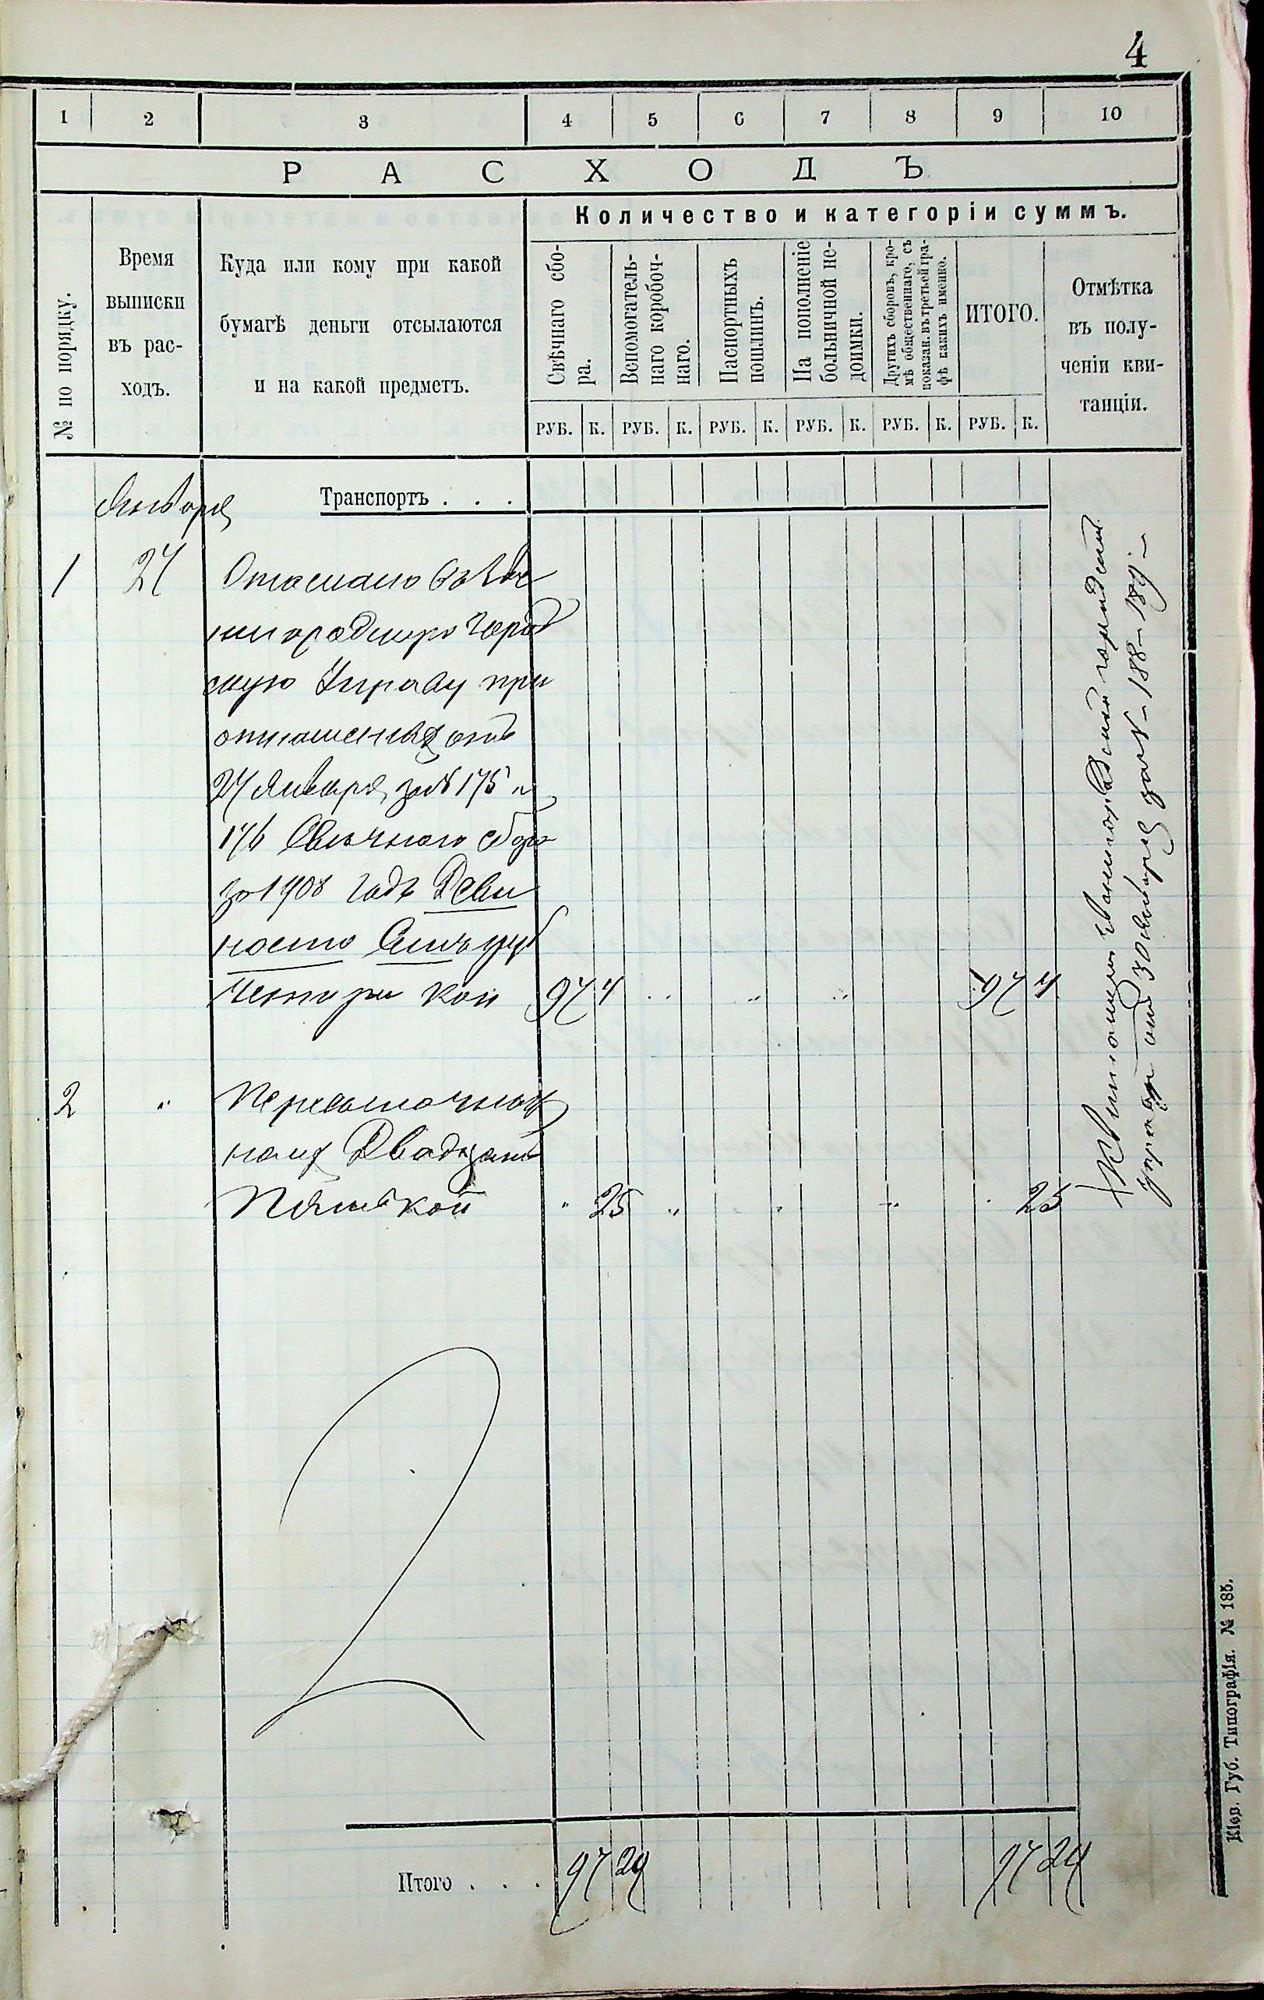 4
1 2 3 4 5 6 7 8 9 10
РАСХОДЪ
Количество и категоріи суммъ.
№ по порядку.
Время
выписки
въ рас-
ходъ.
Куда или кому при какой
бумагѣ деньги отсылаются
и на какой предметъ.
Свѣчнаго сбо-
ра.
Вспомогатель-
наго коробоч-
наго.
Паспортныхъ
пошлинъ.
На пополненіе
больничной не-
доимки.
Другихъ сборовъ, кро-
мѣ общественнаго, съ
показан. въ третьей гра-
фѣ какихъ именно.
ИТОГО.
Отмѣтка
въ полу-
ченіи кви-
танціи.
РУБ. К. РУБ. К. РУБ. К. РУБ. К. РУБ. К. РУБ. К.
Января
Транспортъ . . .
1 27 Отослано въ Зве
нигородскую Город
скую Управу при
отношеніяхъ отъ
27 Января за № 175 и
176 Свѣчного сбора
за 1908 годъ Девя
носто Семь руб
Четыре коп 97 4 97 4
2 " Пересылочныхъ
нихъ Двадцать
Пять коп 25 25
Квитанціи Звенигородской городской
управы отъ 30 Января за № 188 - 189
Итого . . . 97 29 97 29
Кіев. Губ. Типографія. № 185.